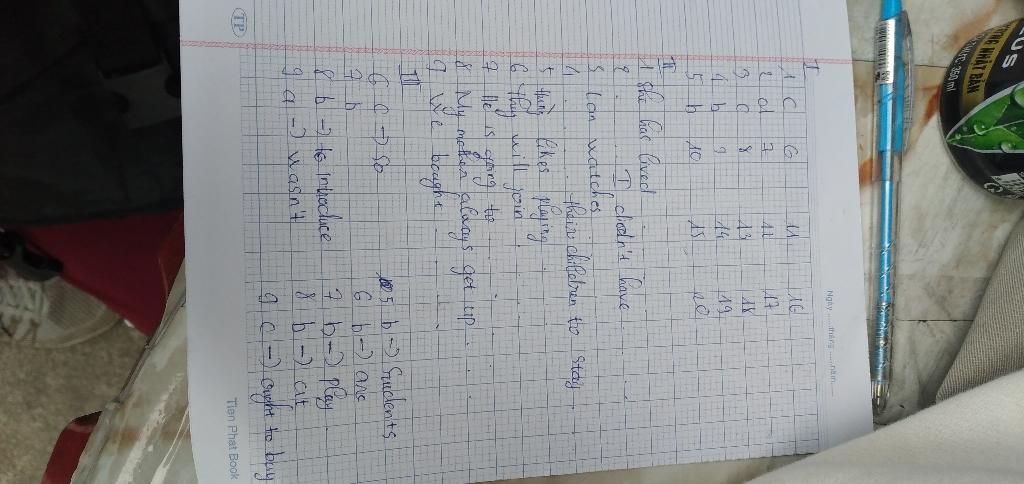 Ngày ..... tháng ..... năm .....
I
1 c 6 11 16
2 d 7 12 17
3 c 8 13 18
4 b 9 14 19
5 b 10 15 20
II
1 she has lived
2 ......... I didn't have .....
3 Lan watches
4 ......... their children to stay.
5 likes playing
6 They will join .....
7 He is going to .....
8 My mother always get up .....
9 We bought .....
III
6 c → so
7 b
8 b → to introduce
9 a → wasn't
5 b → Students
6 b → are
7 b → play
8 b → at
9 c → ought to buy
TP
Tien Phat Book
350 ml